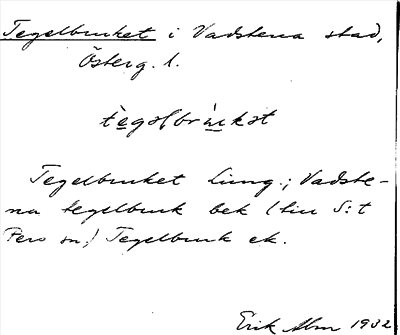 Tegelbruket i Vadstena stad,
Österg. l.
tegəlbrùkət
Tegelbruket Ljung.; Vadste-
na tegelbruk bek (till S:t
Pers sn;) Tegelbruk ek.
Erik Abm 1932